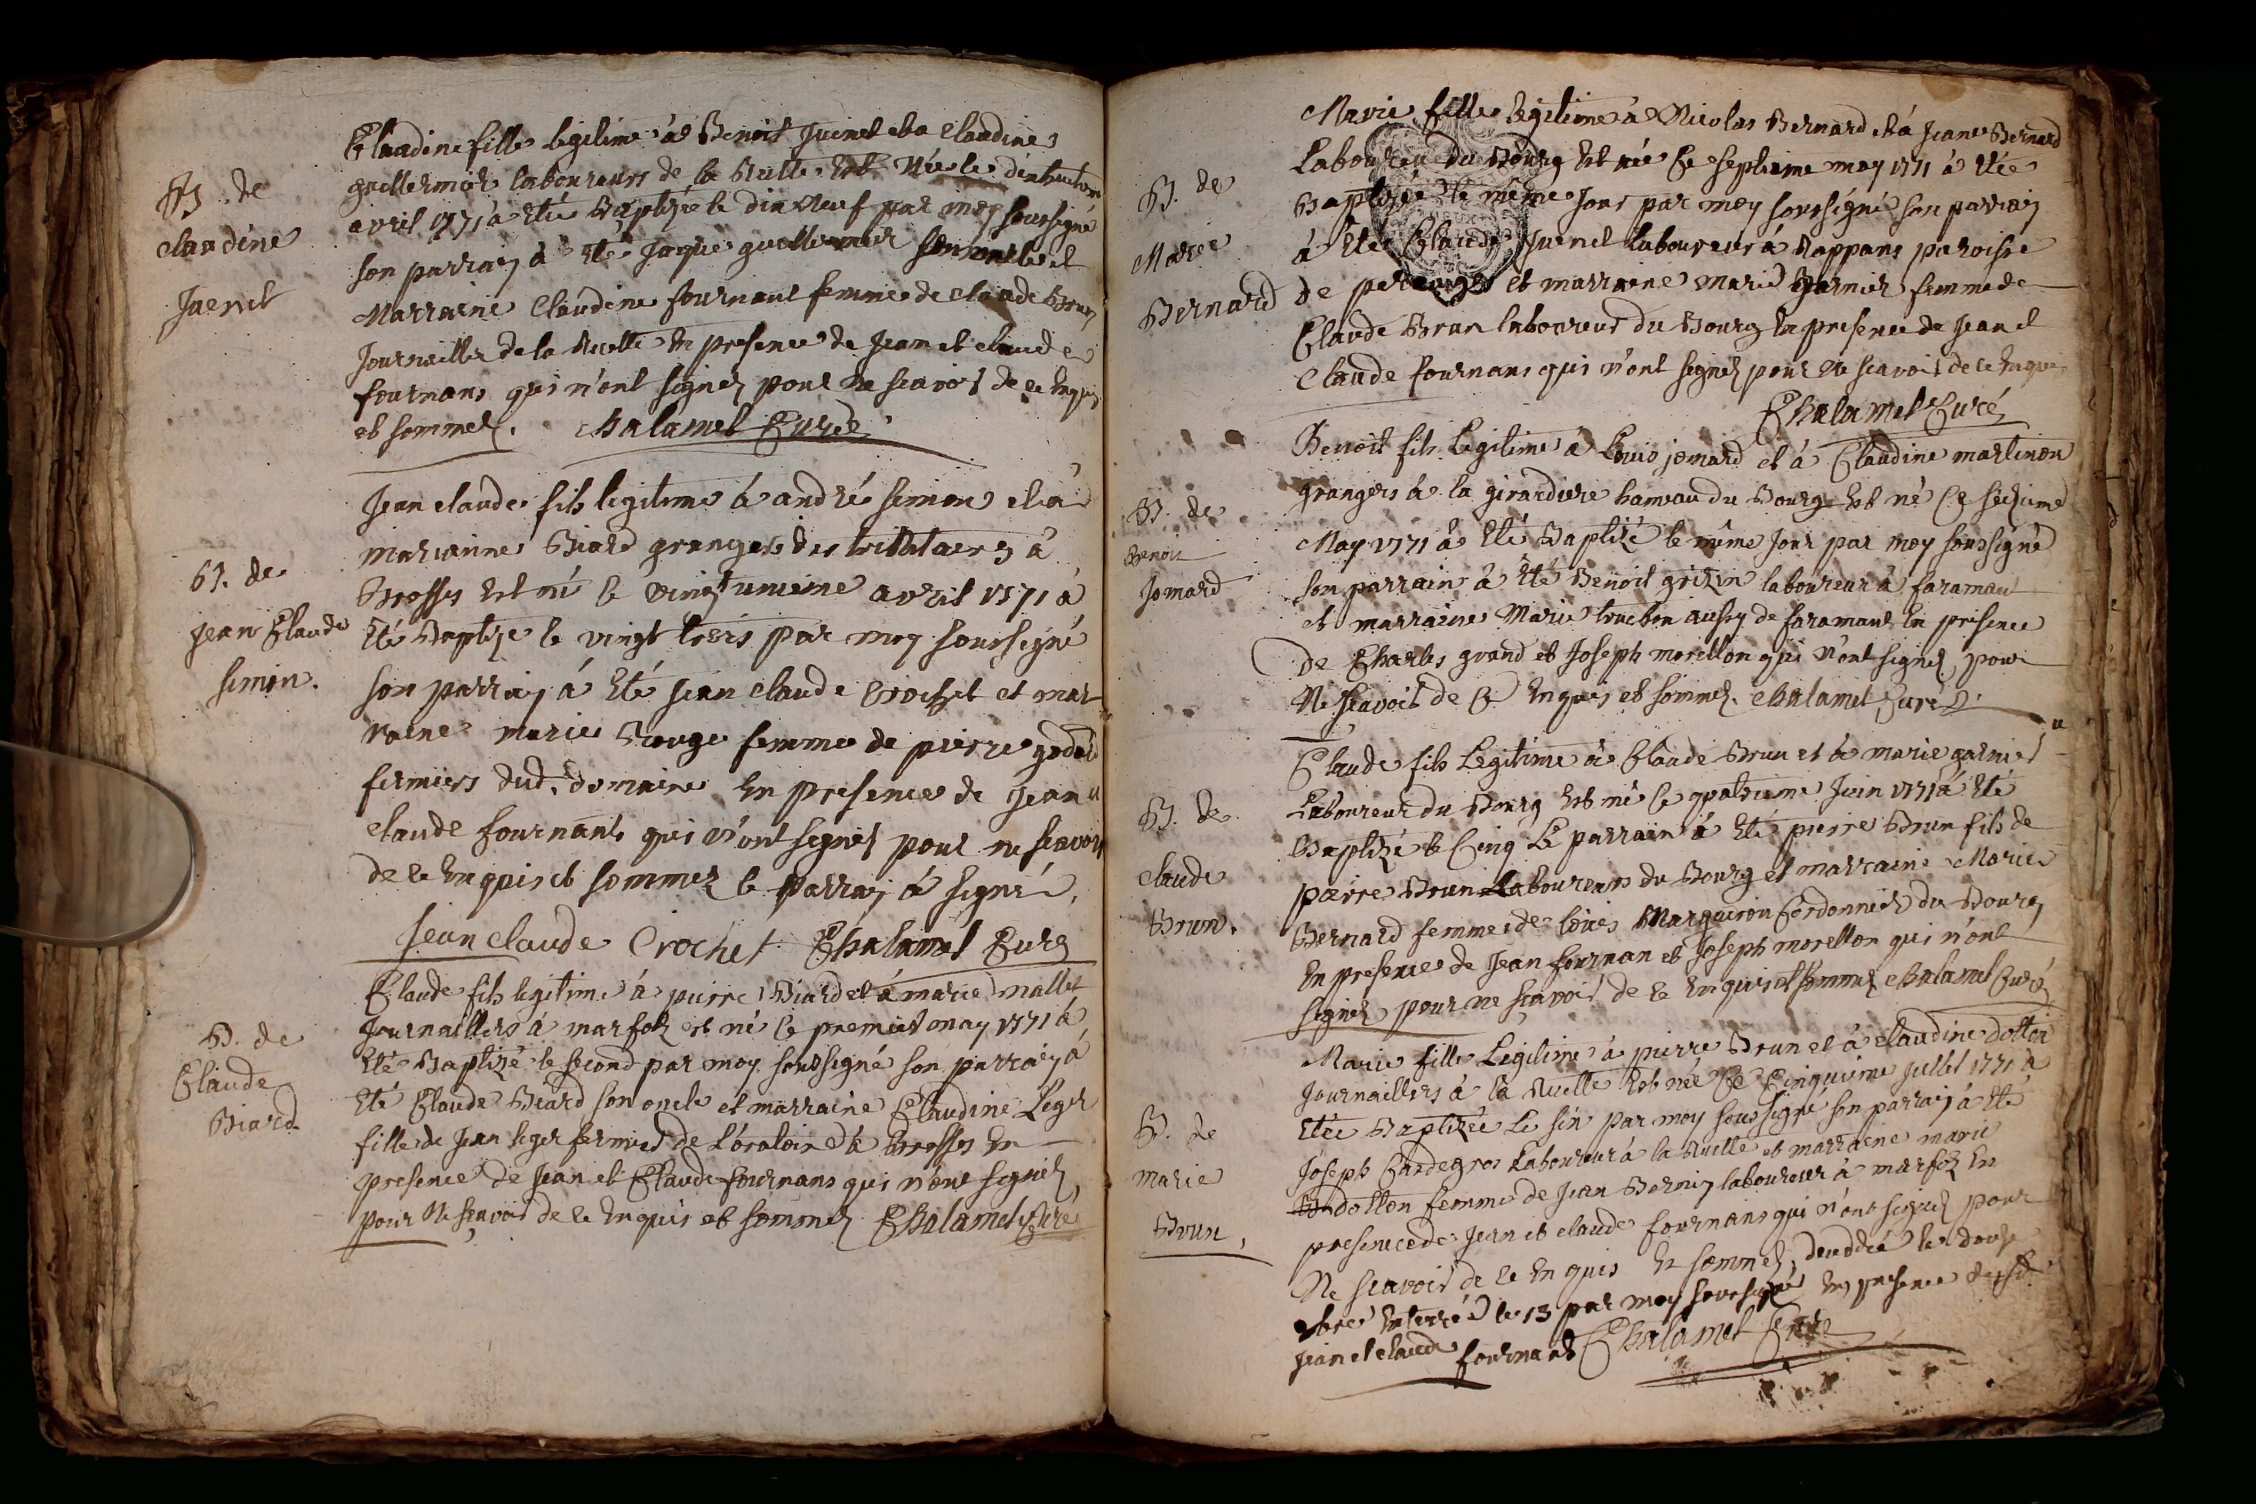 B. de
Claudine
Juenet
Claudine fille legitime à Benoit Juenet et a Claudine
guillermier laboureurs de la Ruelle est Née le dixhuitieme
avril 1771 à été Baptizée le dix Neuf par moy soussigné
son parrain à été Jaque guillermier son oncle et
Marraine Claudine fournant femme de Claude Brun
Journallier de la Ruelle En presence de Jean et claude
fournans qui n'ont signez pour ne scavoir de ce Enquis
et sommez. Chalamel Curé
B. de
jean Claude
simon.
Jean claude fils legitime à andré simon et à
marianne Biard grangers des à
Brosses est né le vingtunieme avril 1771 à
Eté Baptize le vingt trois par moy soussigné
son parrain à Eté Jean claude Crochet et mar
raine marie Rouge femme de pierre
fermiers dud. domaine En presence de Jean
claude fournants qui n'ont signez pour ne scavoir
de ce Enquis et sommez le parrain à signé.
Jean claude Crochet Chalamel Curé
B. de
Claude
Biard
Claude fils legitime à pierre Biard et à marie mallet
Journalliers à marfoz est né le premier may 1771 à
Eté Baptizé le second par moy soussigné son parrain à
Eté Claude Biard son oncle et marraine Claudine Leger
fille de Jean leger fermier de L'oratoire à Brosses En
presence de Jean et Claude fournans qui n'ont signez,
pour Ne scavoir de ce Enquis et sommez Chalamel Curé
B. de
Marie
Bernard
Marie fille legitime à Nicolas Bernard et à Jeane Bernard
Laboureu du Bourg Est née le septieme may 1771 à Etée
Baptizée le même Jour par moy soussigné son parrain
à Eté Claude Juenet Laboureur à Rappans paroisse
de et marraine marie Garnier femme de
Claude Brun laboureur du Bourg En presence de Jean et
Claude fournans qui n'ont signez pour Ne scavoir de ce Enquis
Chalamel Curé
B. de
Benoit
Jomard
Benoit fils Legitime à Louis jomard et à Claudine martinon
grangers à la girardiere hameau du Bourg Est né Ce seizieme
May 1771 à Eté Baptizé le même Jour par moy soussigné
son parrain à Eté Benoit grizin laboureur à faramant
et marraine Marie truchon aussy de faramant En presence
de Charles grand et Joseph morellon qui n'ont signez pour
Ne scavoir de Ce Enquis et sommez. Chalamel Curé
B. de
claude
Brun.
Claude fils Legitime à Claude Brun et à marie garnier
Laboureur du Bourg Est né le quatrieme Juin 1771 à Eté
Baptizé le Cinq Le parrain à Eté pierre Brun fils de
pierre Brun Laboureurs du Bourg et marraine Marie
Bernard femme de louis Marguiron Cordonnier du Bourg
En presence de Jean fournan et Joseph morellon qui n'ont
signez pour ne scavoir de ce Enquis et sommez Chalamel Curé
B. de
marie
Brun,
Marie fille Legitime à pierre Brun et à claudine dotton
Journalliers à la Ruelle Est née Ce Cinquieme Jullet 1771 à
Etée Baptizée Le six par moy soussigné son parrain à Eté
Joseph Cardegros Laboureur à la Ruelle et marraine marie
dotton femme de Jean Bernin laboureur à marfoz En
presence de Jean et claude fournans qui n'ont signez pour
Ne scavoir de ce Enquis Et sommez, le douze
Enterrée le 13 par moy soussigné En presence desd.
Jean et claude fournans Chalamel Curé